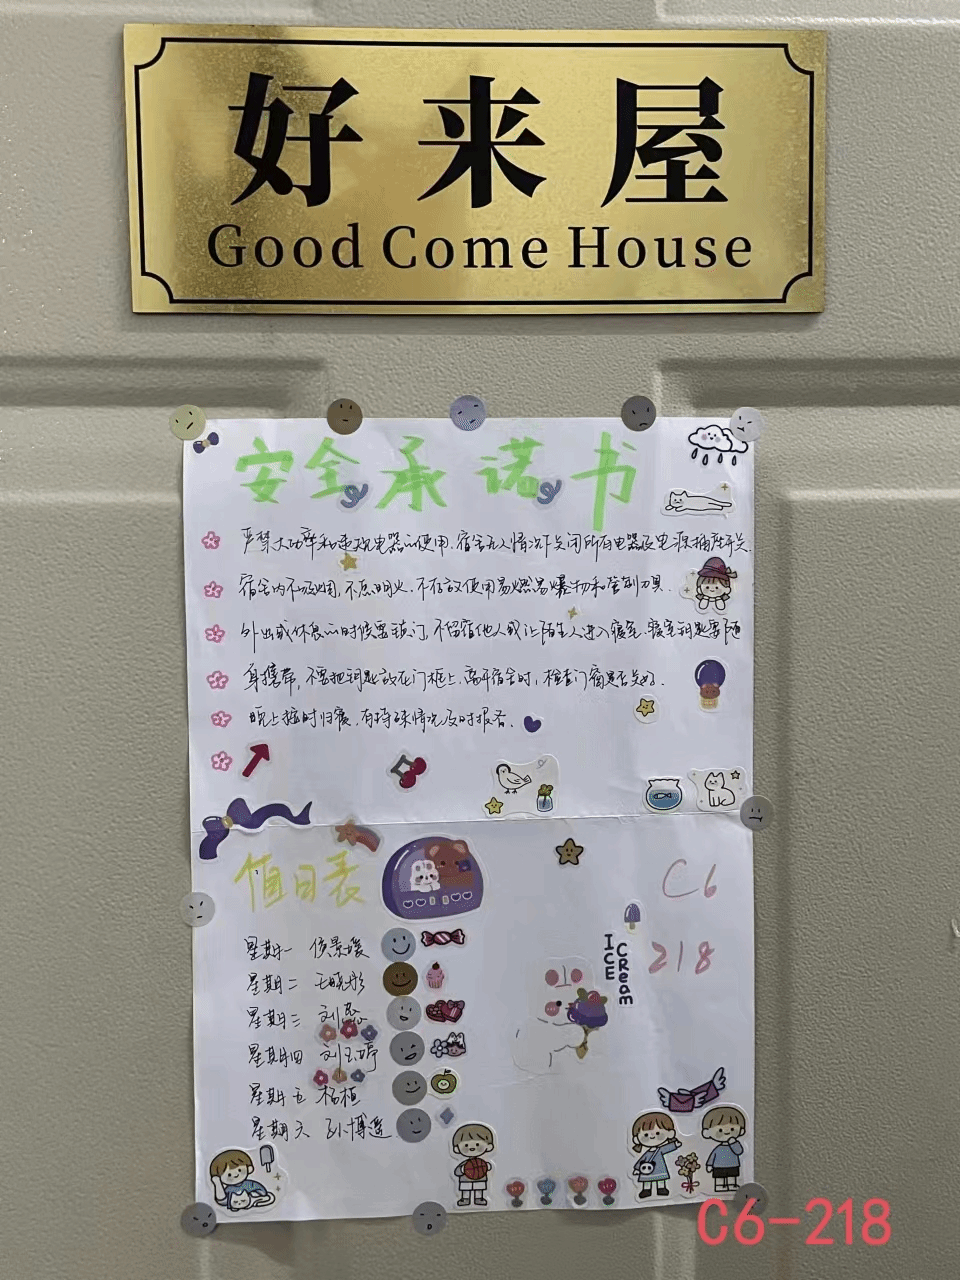 好来屋
Good Come House
安全承诺书
严禁大功率和违规电器的使用.宿舍无人情况下关闭所有电器及电源插座开关.
宿舍内不吸烟,不点明火.不存放使用易燃易爆物和管制刀具.
外出或休息的时候要锁门,不留宿他人或让陌生人进入寝室.寝室钥匙要随
身携带,不要把钥匙放在门框上.离开宿舍时,检查门窗是否关好.
晚上按时归寝.有特殊情况及时报告.
值日表
C6
218
ICE
CReam
星期一 侯景媛
星期二 王晓彤
星期三 刘蕊
星期四 刘玉婷
星期五 杨桓
星期六 孙博遥
C6-218